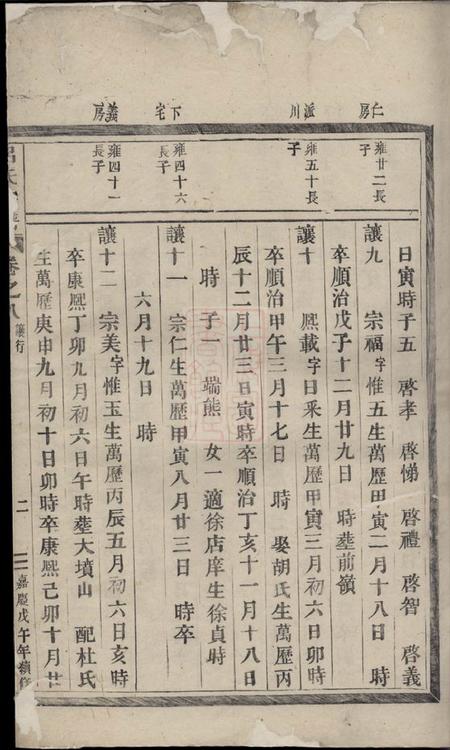 仁房
派川
下宅
義房
雍廿二長子
雍五十長子
雍四十六長子
雍四十一長子
日寅時子五 啓孝 啓悌 啓禮 啓智 啓義
讓九 宗福字惟五生萬歷甲寅二月十八日 時
卒順治戊子十二月廿九日 時塟前嶺
讓十 熙載字日采生萬歷甲寅三月初六日卯時
卒順治甲午三月十七日 時 娶胡氏生萬歷丙
辰十二月廿三日寅時卒順治丁亥十一月十八日
時 子一 端熊 女一適徐店庠生徐貞時
讓十一 宗仁生萬歷甲寅八月廿三日 時卒
六月十九日 時
讓十二 宗美字惟玉生萬歷丙辰五月初六日亥時
卒康熙丁卯九月初六日午時塟大墳山 配杜氏
生萬歷庚申九月初十日卯時卒康熙己卯十月廿
卷之八 讓行
二
嘉慶戊午年續修